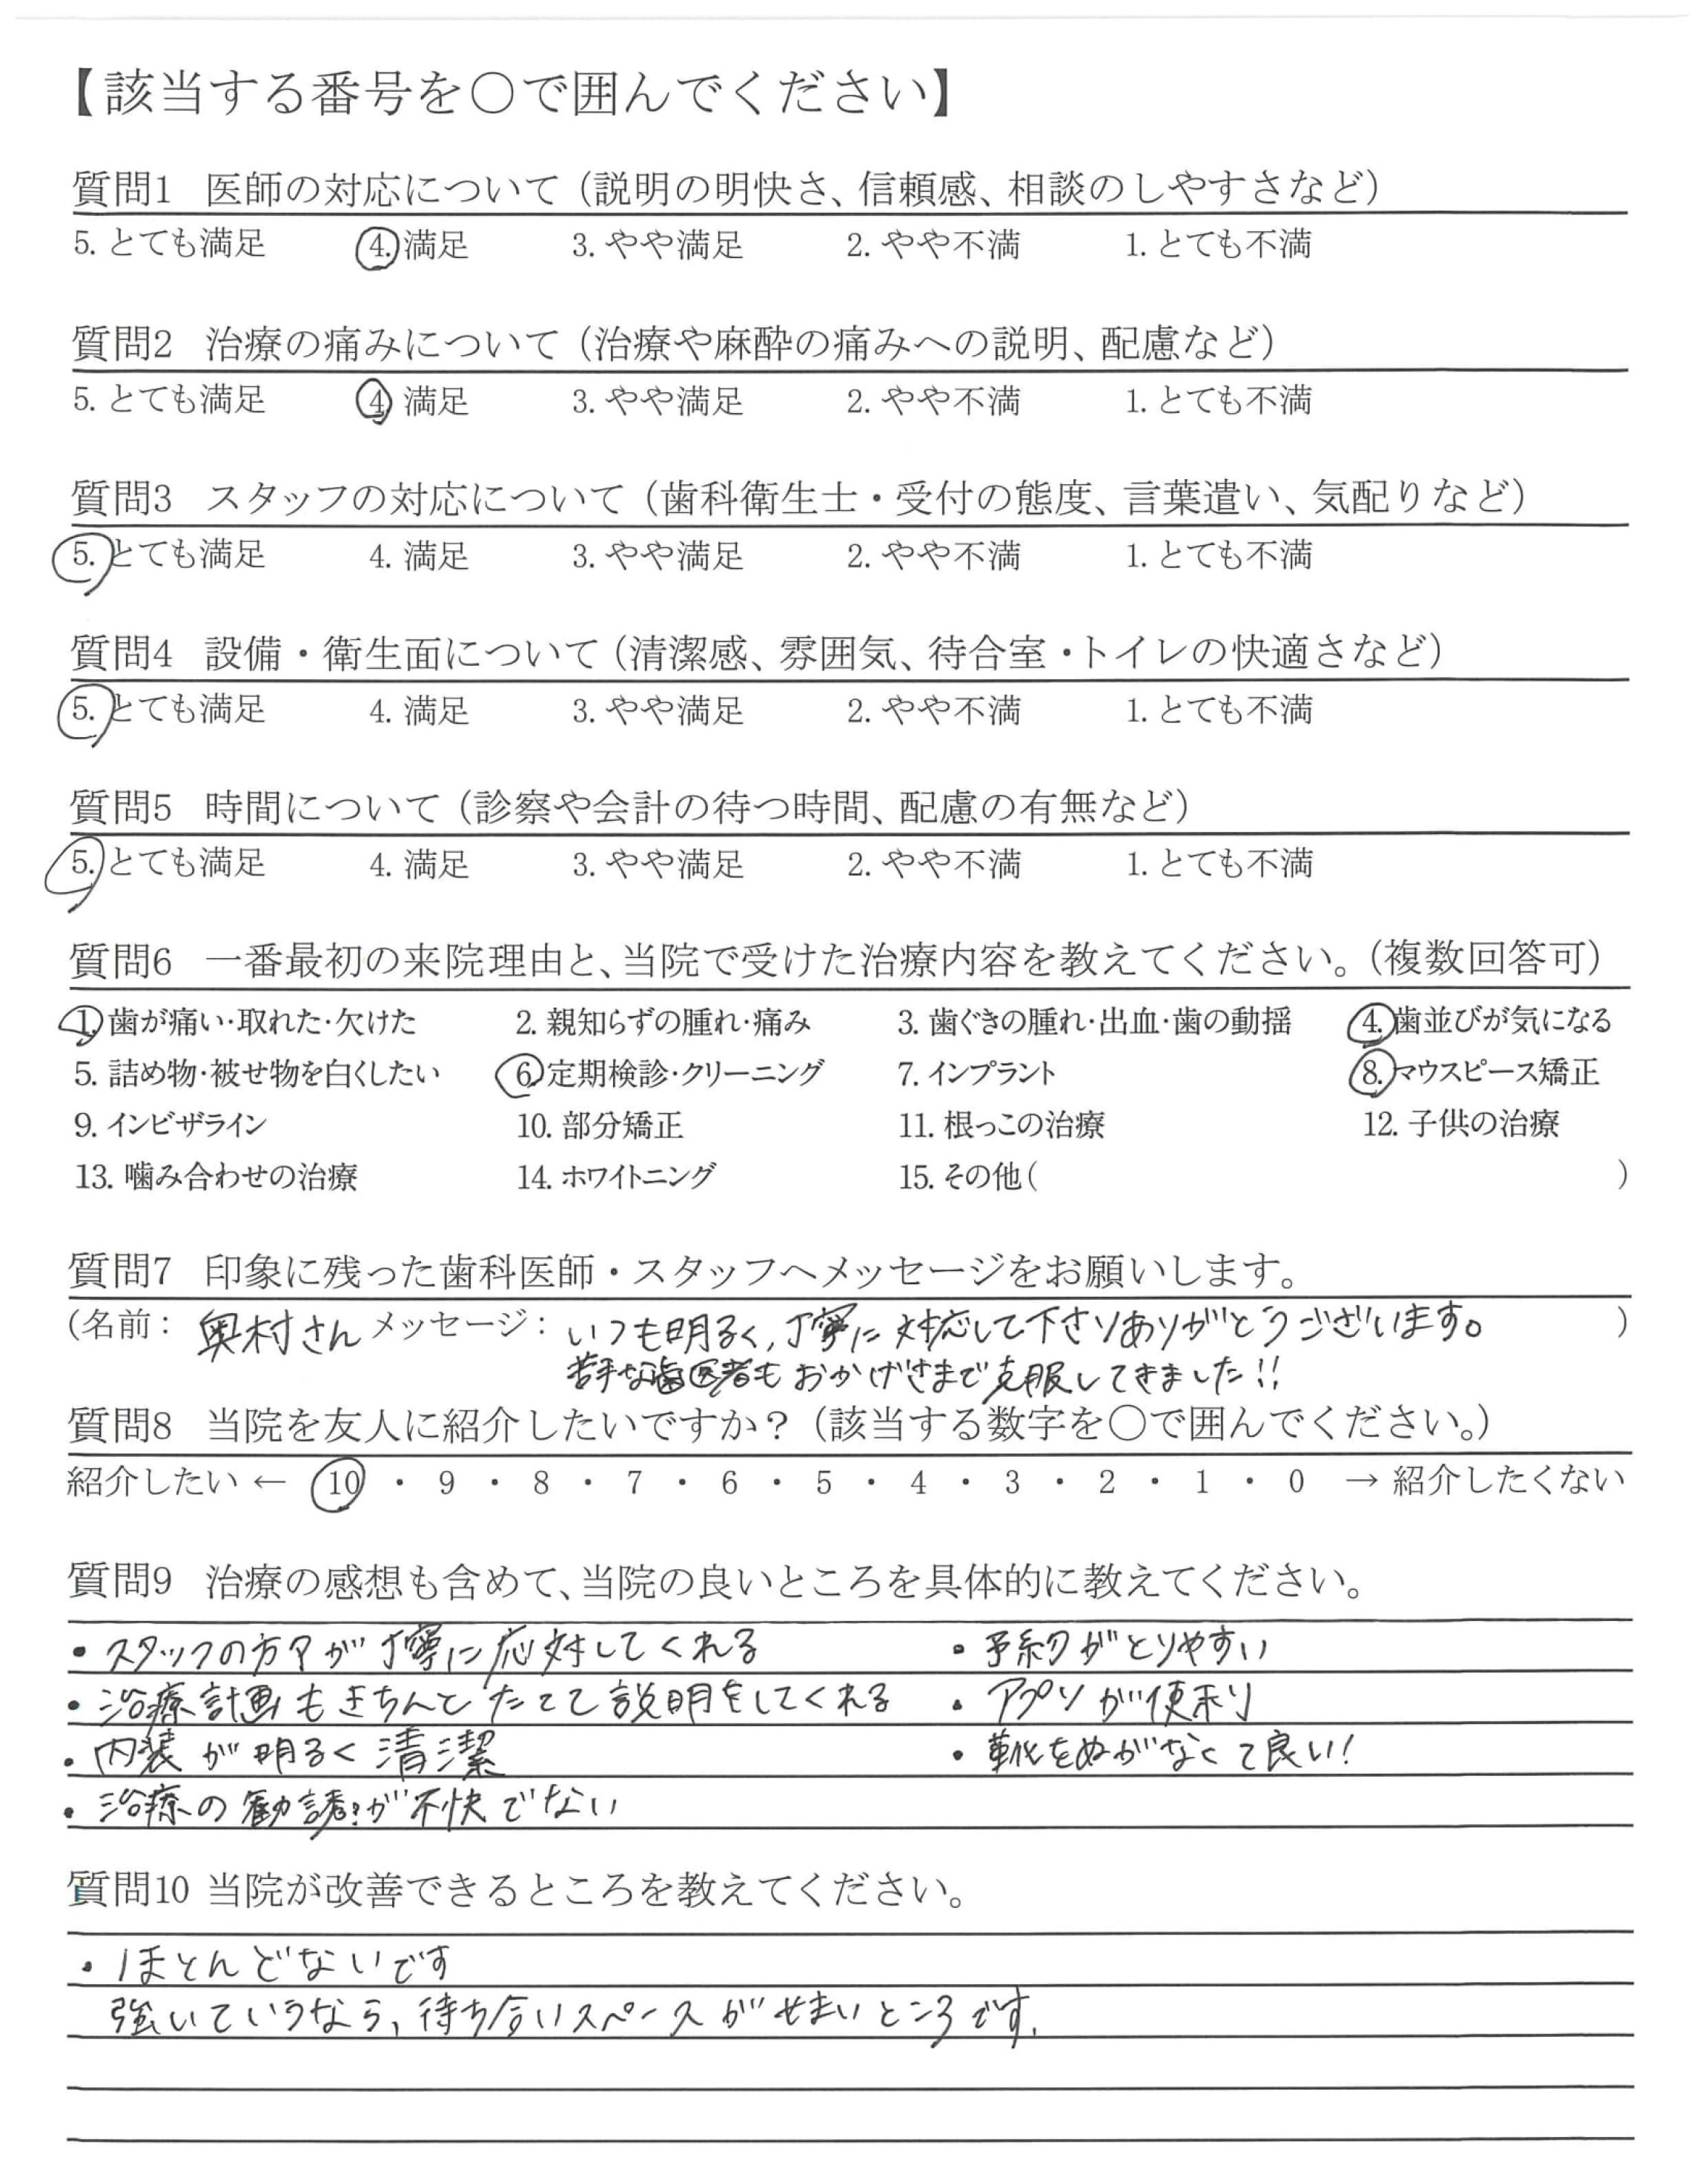 【該当する番号を○で囲んでください】
質問1 医師の対応について（説明の明快さ、信頼感、相談のしやすさなど）
5. とても満足 4. 満足 3. やや満足 2. やや不満 1. とても不満
質問2 治療の痛みについて（治療や麻酔の痛みへの説明、配慮など）
5. とても満足 4 満足 3. やや満足 2. やや不満 1. とても不満
質問3 スタッフの対応について（歯科衛生士・受付の態度、言葉遣い、気配りなど）
5. とても満足 4. 満足 3. やや満足 2. やや不満 1. とても不満
質問4 設備・衛生面について（清潔感、雰囲気、待合室・トイレの快適さなど）
5. とても満足 4. 満足 3. やや満足 2. やや不満 1. とても不満
質問5 時間について（診察や会計の待つ時間、配慮の有無など）
5. とても満足 4. 満足 3. やや満足 2. やや不満 1. とても不満
質問6 一番最初の来院理由と、当院で受けた治療内容を教えてください。（複数回答可）
1. 歯が痛い・取れた・欠けた 2. 親知らずの腫れ・痛み 3. 歯ぐきの腫れ・出血・歯の動揺 4. 歯並びが気になる
5. 詰め物・被せ物を白くしたい 6. 定期検診・クリーニング 7. インプラント 8. マウスピース矯正
9. インビザライン 10. 部分矯正 11. 根っこの治療 12. 子供の治療
13. 噛み合わせの治療 14. ホワイトニング 15. その他（ ）
質問7 印象に残った歯科医師・スタッフへメッセージをお願いします。
（名前： 奥村さん メッセージ： いつも明るく、丁寧に対応して下さりありがとうございます。 ）
苦手な歯医者もおかげさまで克服してきました!!
質問8 当院を友人に紹介したいですか？（該当する数字を○で囲んでください。）
紹介したい ← 10 ・ 9 ・ 8 ・ 7 ・ 6 ・ 5 ・ 4 ・ 3 ・ 2 ・ 1 ・ 0 → 紹介したくない
質問9 治療の感想も含めて、当院の良いところを具体的に教えてください。
・スタッフの方々が丁寧に応対してくれる ・予約がとりやすい
・治療計画もきちんとたてて説明をしてくれる ・アプリが便利
・内装が明るく清潔 ・靴をぬがなくて良い!
・治療の勧誘?が不快でない
質問10 当院が改善できるところを教えてください。
・ほとんどないです
強いていうなら、待ち合いスペースがせまいところです。